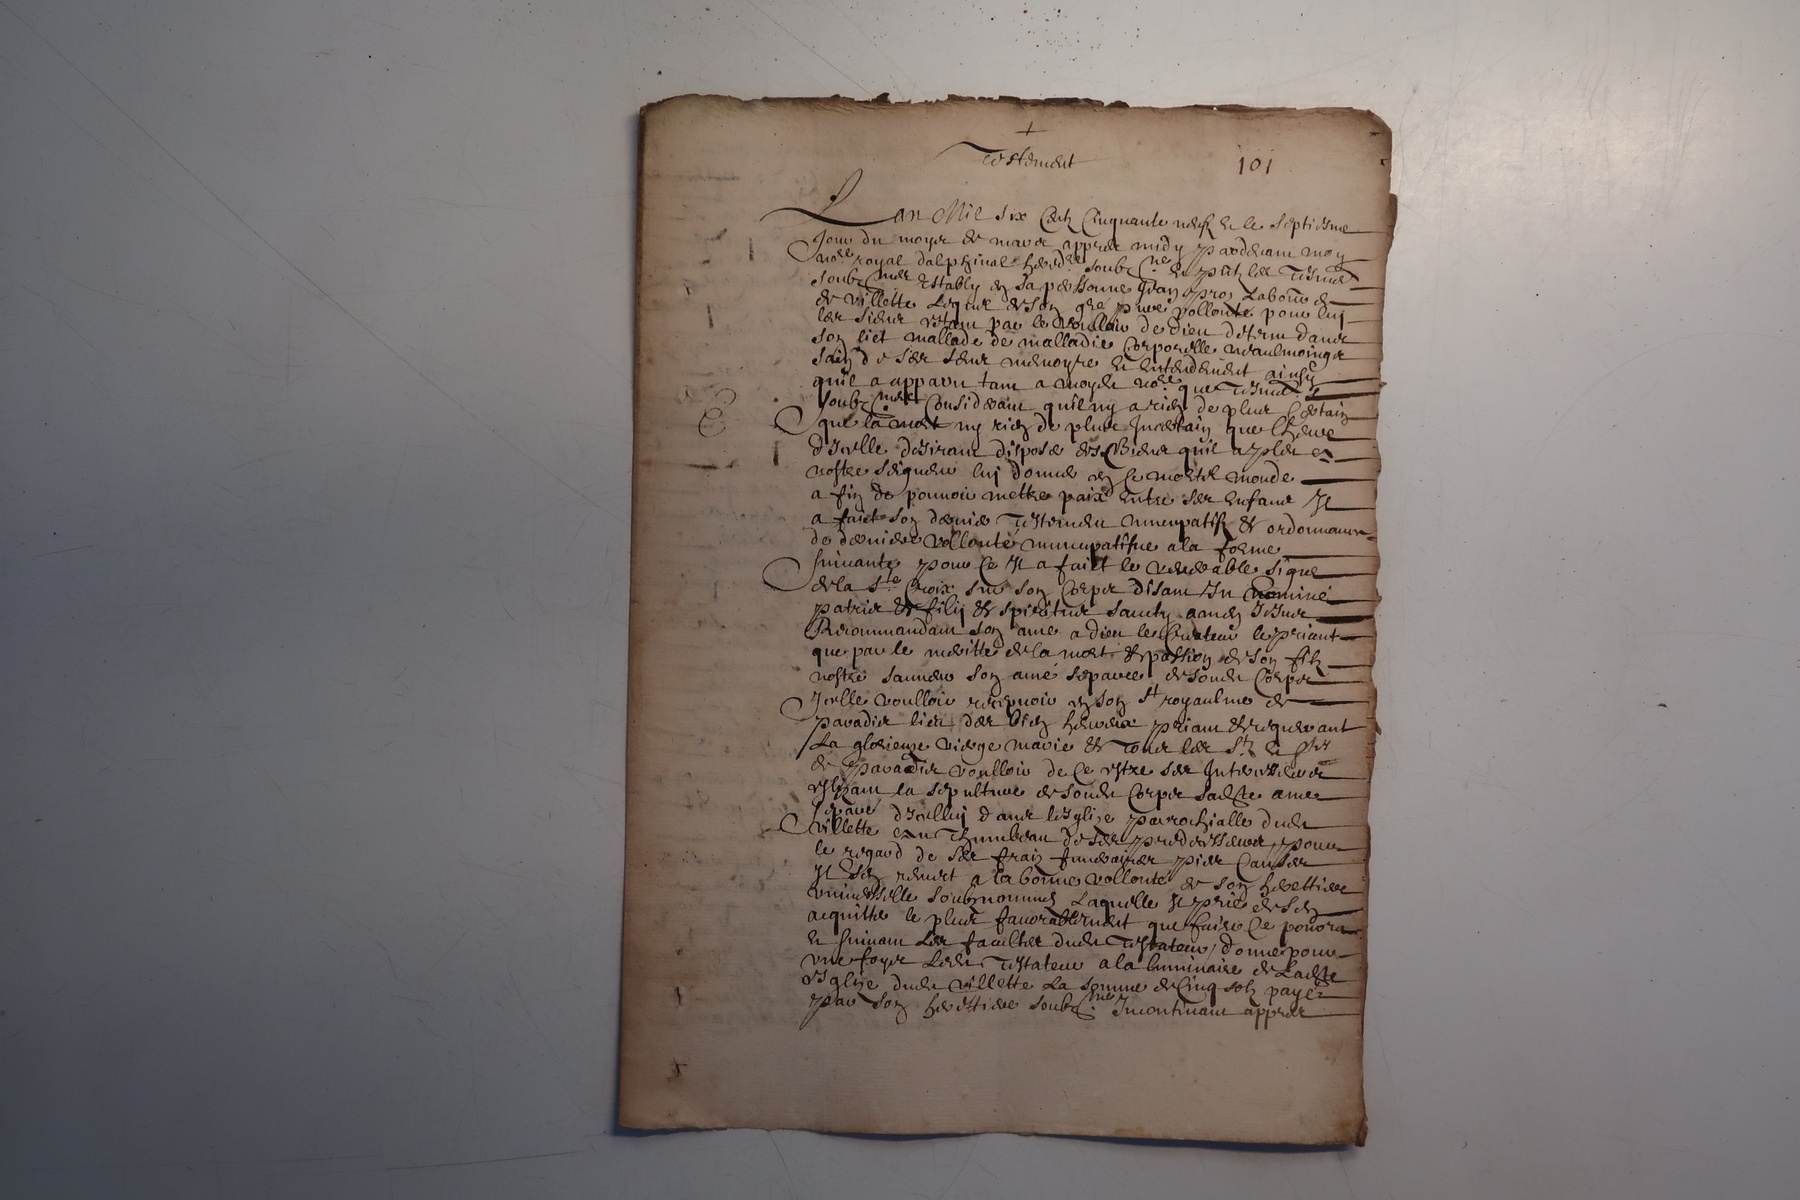 +
Testement 101
Lan Mil six Centz Cinquante neuf et le septiesme
Jour du moys de mars appres midy pardevant moy
no.re royal dalphinal hered.re soubz.ne et pntz les tesmoins
soubz.nes establij en sa personne Jean pros Laboureur de
de villette Lequel de son gre pure vollonte pour luy
les siens estant par le voulloir de dieu detenu dans
son lict mallade de malladie Corporelle neaulmoings
sain de ses sens memoyre et entendement ainsy
quil a apparu tant a moydit no.re que tesmoins
soubz.nes Considerant quil ny a rien de plus Certain
que la mort ny rien de plus Incertain que lheure
dIcelle desirant disposer des Biens quil a pleu a
nostre seigneur luj donner en Ce mortel monde
a fin de pouvoir mettre paix entre ses enfans Il
a faict son dernier testement nuncupatif et ordonnance
de derniere vollonté nuncupatifve a la forme
suivante pour Ce Il a faict le venerable signe
de la Ste Croix sur son Corps disant In nomine
patris et filij et spiritus sancty amen Jesus
Recommandant son ame a dieu le Createur le priant
que par le meritte de la mort et passion de son filz
nostre sauveur son ame separee de sondit Corps
Icelle voulloir recepvoir en son st royaulme de
paradis lieu des bien heureux priant et requerant
La glorieuse vierge marie et tous les Stz et Stes
de paradis voulloir de Ce estre ses Intercesseurs
eslizant la sepulture de sondit Corps ladicte ame
separe dIcelluy dans lesglize parrochialle dudit
villette et au thumbeau de ses predecesseurs, pour
le regard de ses frais funeraires pies Causes
Il sen remet a la bonne vollonte de son herettiere
universelle soubznommee Laquelle Il prie de sen
acquitter le plus favorablement que faire Ce pourra
et suivant les facultes dudit testateur, donne pour
une foys Ledit testateur a la luminaire de Ladicte
esglize dudit villette La somme de Cinq solz payes
par son herettiere soubz.nee Incontinant appres